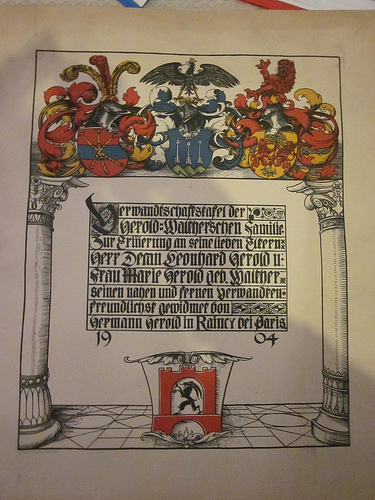 Verwandtschaftstafel der
Herold-Waltherschen Familie
Zur Erinerung an seine lieben Eltern:
Herr Decan Leonhard Herold u:
Frau Marie Herold geb. Walther,
seinen nahen und fernen Verwandten
freundlichst gewidmet von
Hermann Herold in Raincy bei Paris
1904